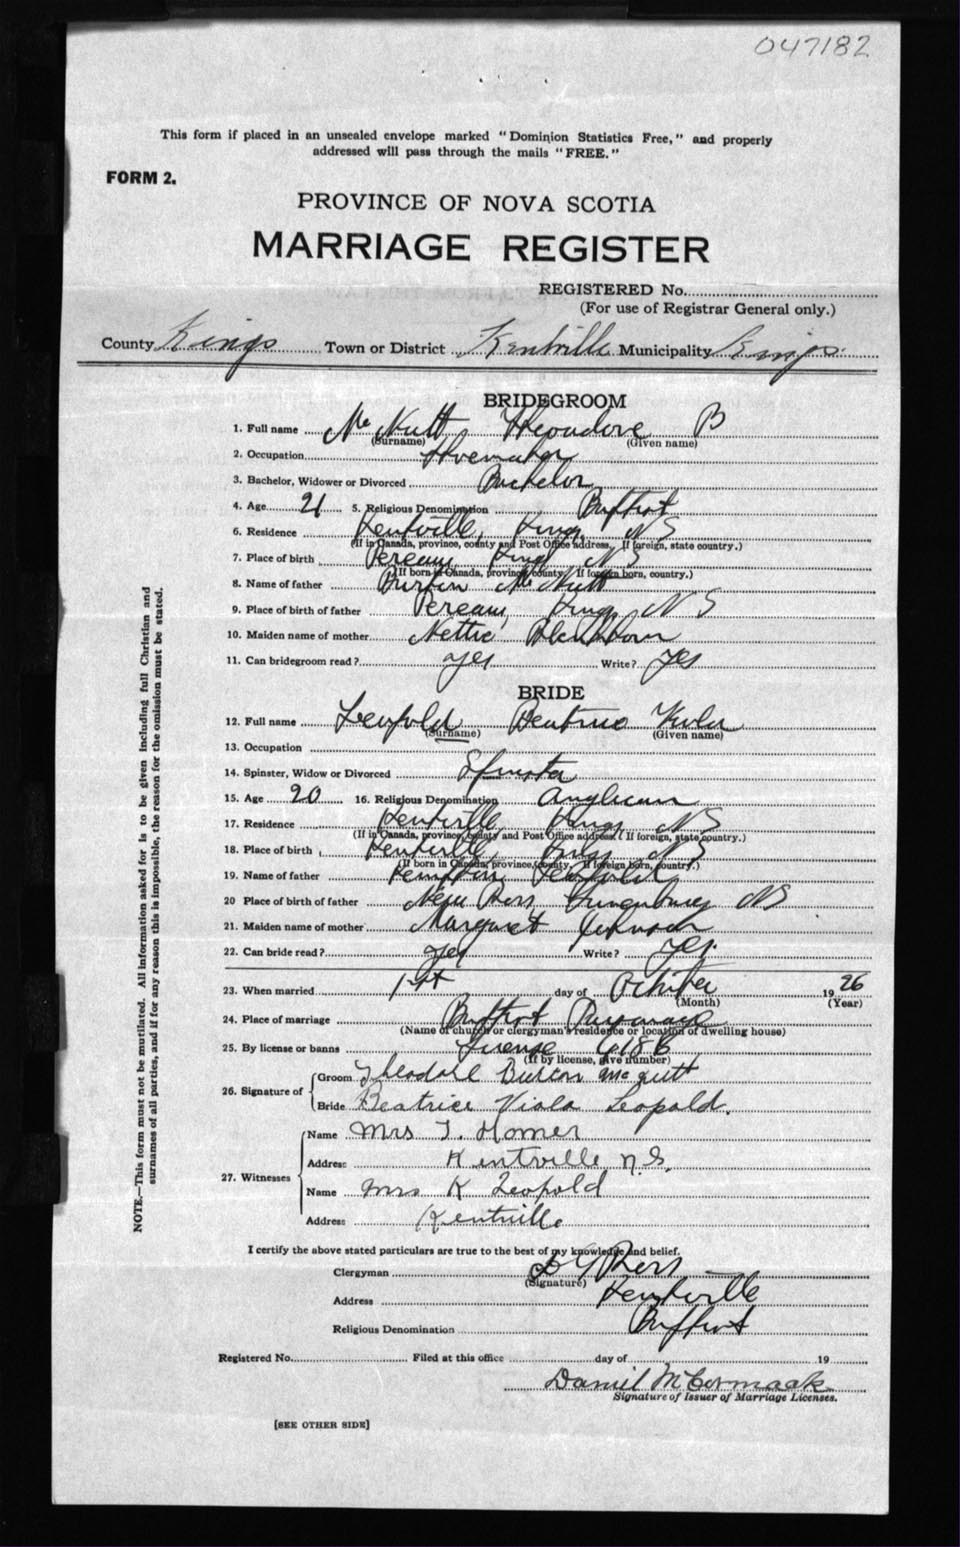 047182
This form if placed in an unsealed envelope marked "Dominion Statistics Free," and properly
addressed will pass through the mails "FREE."
FORM 2.
PROVINCE OF NOVA SCOTIA
MARRIAGE REGISTER
REGISTERED No.
(For use of Registrar General only.)
County Kings Town or District Kentville Municipality Kings
BRIDEGROOM
1. Full name McNutt Theodore B
(Surname) (Given name)
2. Occupation Shoemaker
3. Bachelor, Widower or Divorced Bachelor
4. Age 21 5. Religious Denomination Baptist
6. Residence Kentville, Kings, N S
(If in Canada, province, county and Post Office address. If foreign, state country.)
7. Place of birth Pereau, Kings N S
(If born in Canada, province, county. If foreign born, country.)
8. Name of father Burton McNutt
9. Place of birth of father Pereau, Kings N S
10. Maiden name of mother Nettie
11. Can bridegroom read? yes Write? yes
BRIDE
12. Full name Leopold Beatrice Viola
(Surname) (Given name)
13. Occupation
14. Spinster, Widow or Divorced Spinster
15. Age 20 16. Religious Denomination Anglican
17. Residence Kentville, Kings N S
(If in Canada, province, county and Post Office address. If foreign, state country.)
18. Place of birth Kentville, Kings N S
(If born in Canada, province, county. If foreign born, country.)
19. Name of father Kempton Leopold
20 Place of birth of father New Ross Lunenburg N S
21. Maiden name of mother Margaret Johnson
22. Can bride read? yes Write? yes.
23. When married 1st day of October 1926
(Month) (Year)
24. Place of marriage Baptist Parsonage
(Name of church or clergyman's residence or location of dwelling house)
25. By license or banns License 618B
(If by license, give number)
26. Signature of Groom Theodore Burton McNutt
Bride Beatrice Viola Leopold.
27. Witnesses Name Mrs T. Homer
Address Kentville N.S.
Name Mrs K Leopold
Address Kentville
I certify the above stated particulars are true to the best of my knowledge and belief.
Clergyman Ross
(Signature)
Address Kentville
Religious Denomination Baptist
Registered No. Filed at this office day of 19
Daniel McCormack
Signature of Issuer of Marriage Licenses.
[SEE OTHER SIDE]
NOTE.—This form must not be mutilated. All information asked for is to be given including full Christian and
surnames of all parties, and if for any reason this is impossible, the reason for the omission must be stated.